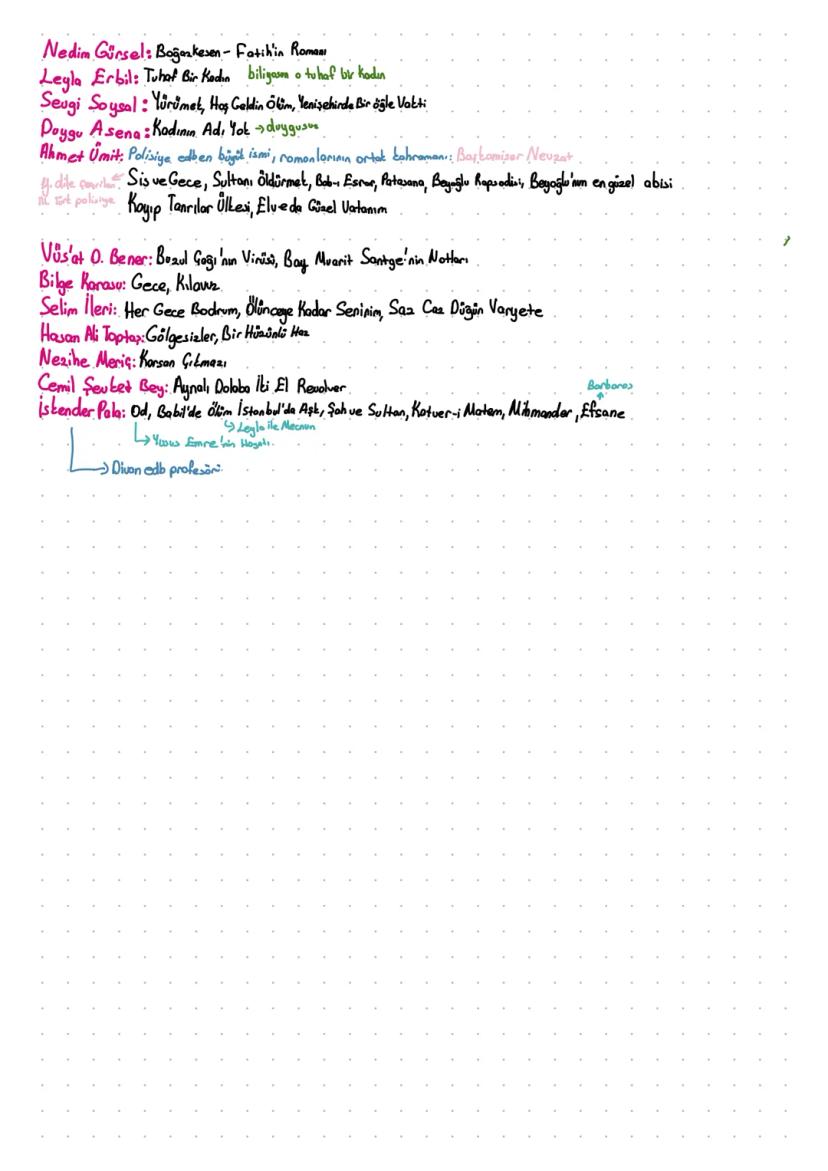 Nedim Gürsel: Boğazkesen - Fatih'in Romanı
Leyla Erbil: Tuhaf Bir Kadın biligasm o tuhaf bir kadın
Sevgi Soysal: Yürümek, Hoş Geldin Ölüm, Yenişehirde Bir öğle Vakti
Duygu Asena: Kadının Adı Yok → duygusuz
Ahmet Ümit: Polisiye edben büyük ismi, romanlarının ortak kahramanı: Başkomiser Nevzat
Y. dile çevrilen Sis ve Gece, Sultanı Öldürmek, Bab-ı Esrar, Patasana, Beyoğlu Rapsodisi, Beyoğlu'nun en güzel abisi
ilk Türk polisiye Kayıp Tanrılar Ülkesi, Elveda Güzel Vatanım
Vüs'at O. Bener: Buzul Çağı'nın Virüsü, Bay Muarit Sahtge'nin Notları
Bilge Karasu: Gece, Kılavuz
Selim İleri: Her Gece Bodrum, Ölünceye Kadar Seninim, Saz Caz Düğün Varyete
Hasan Ali Toptaş: Gölgesizler, Bir Hüzünlü Haz
Nezihe Meriç: Korsan Çıkmazı
Cemil Şevket Bey: Aynalı Dolaba İki El Revolver
Barbaros
İskender Pala: Od, Babil'de Ölüm İstanbul'da Aşk, Şah ve Sultan, Katver-i Matem, Mihmandar, Efsane
Leyla ile Mecnun
Yunus Emre'nin Hayatı
Divan edb profesörü